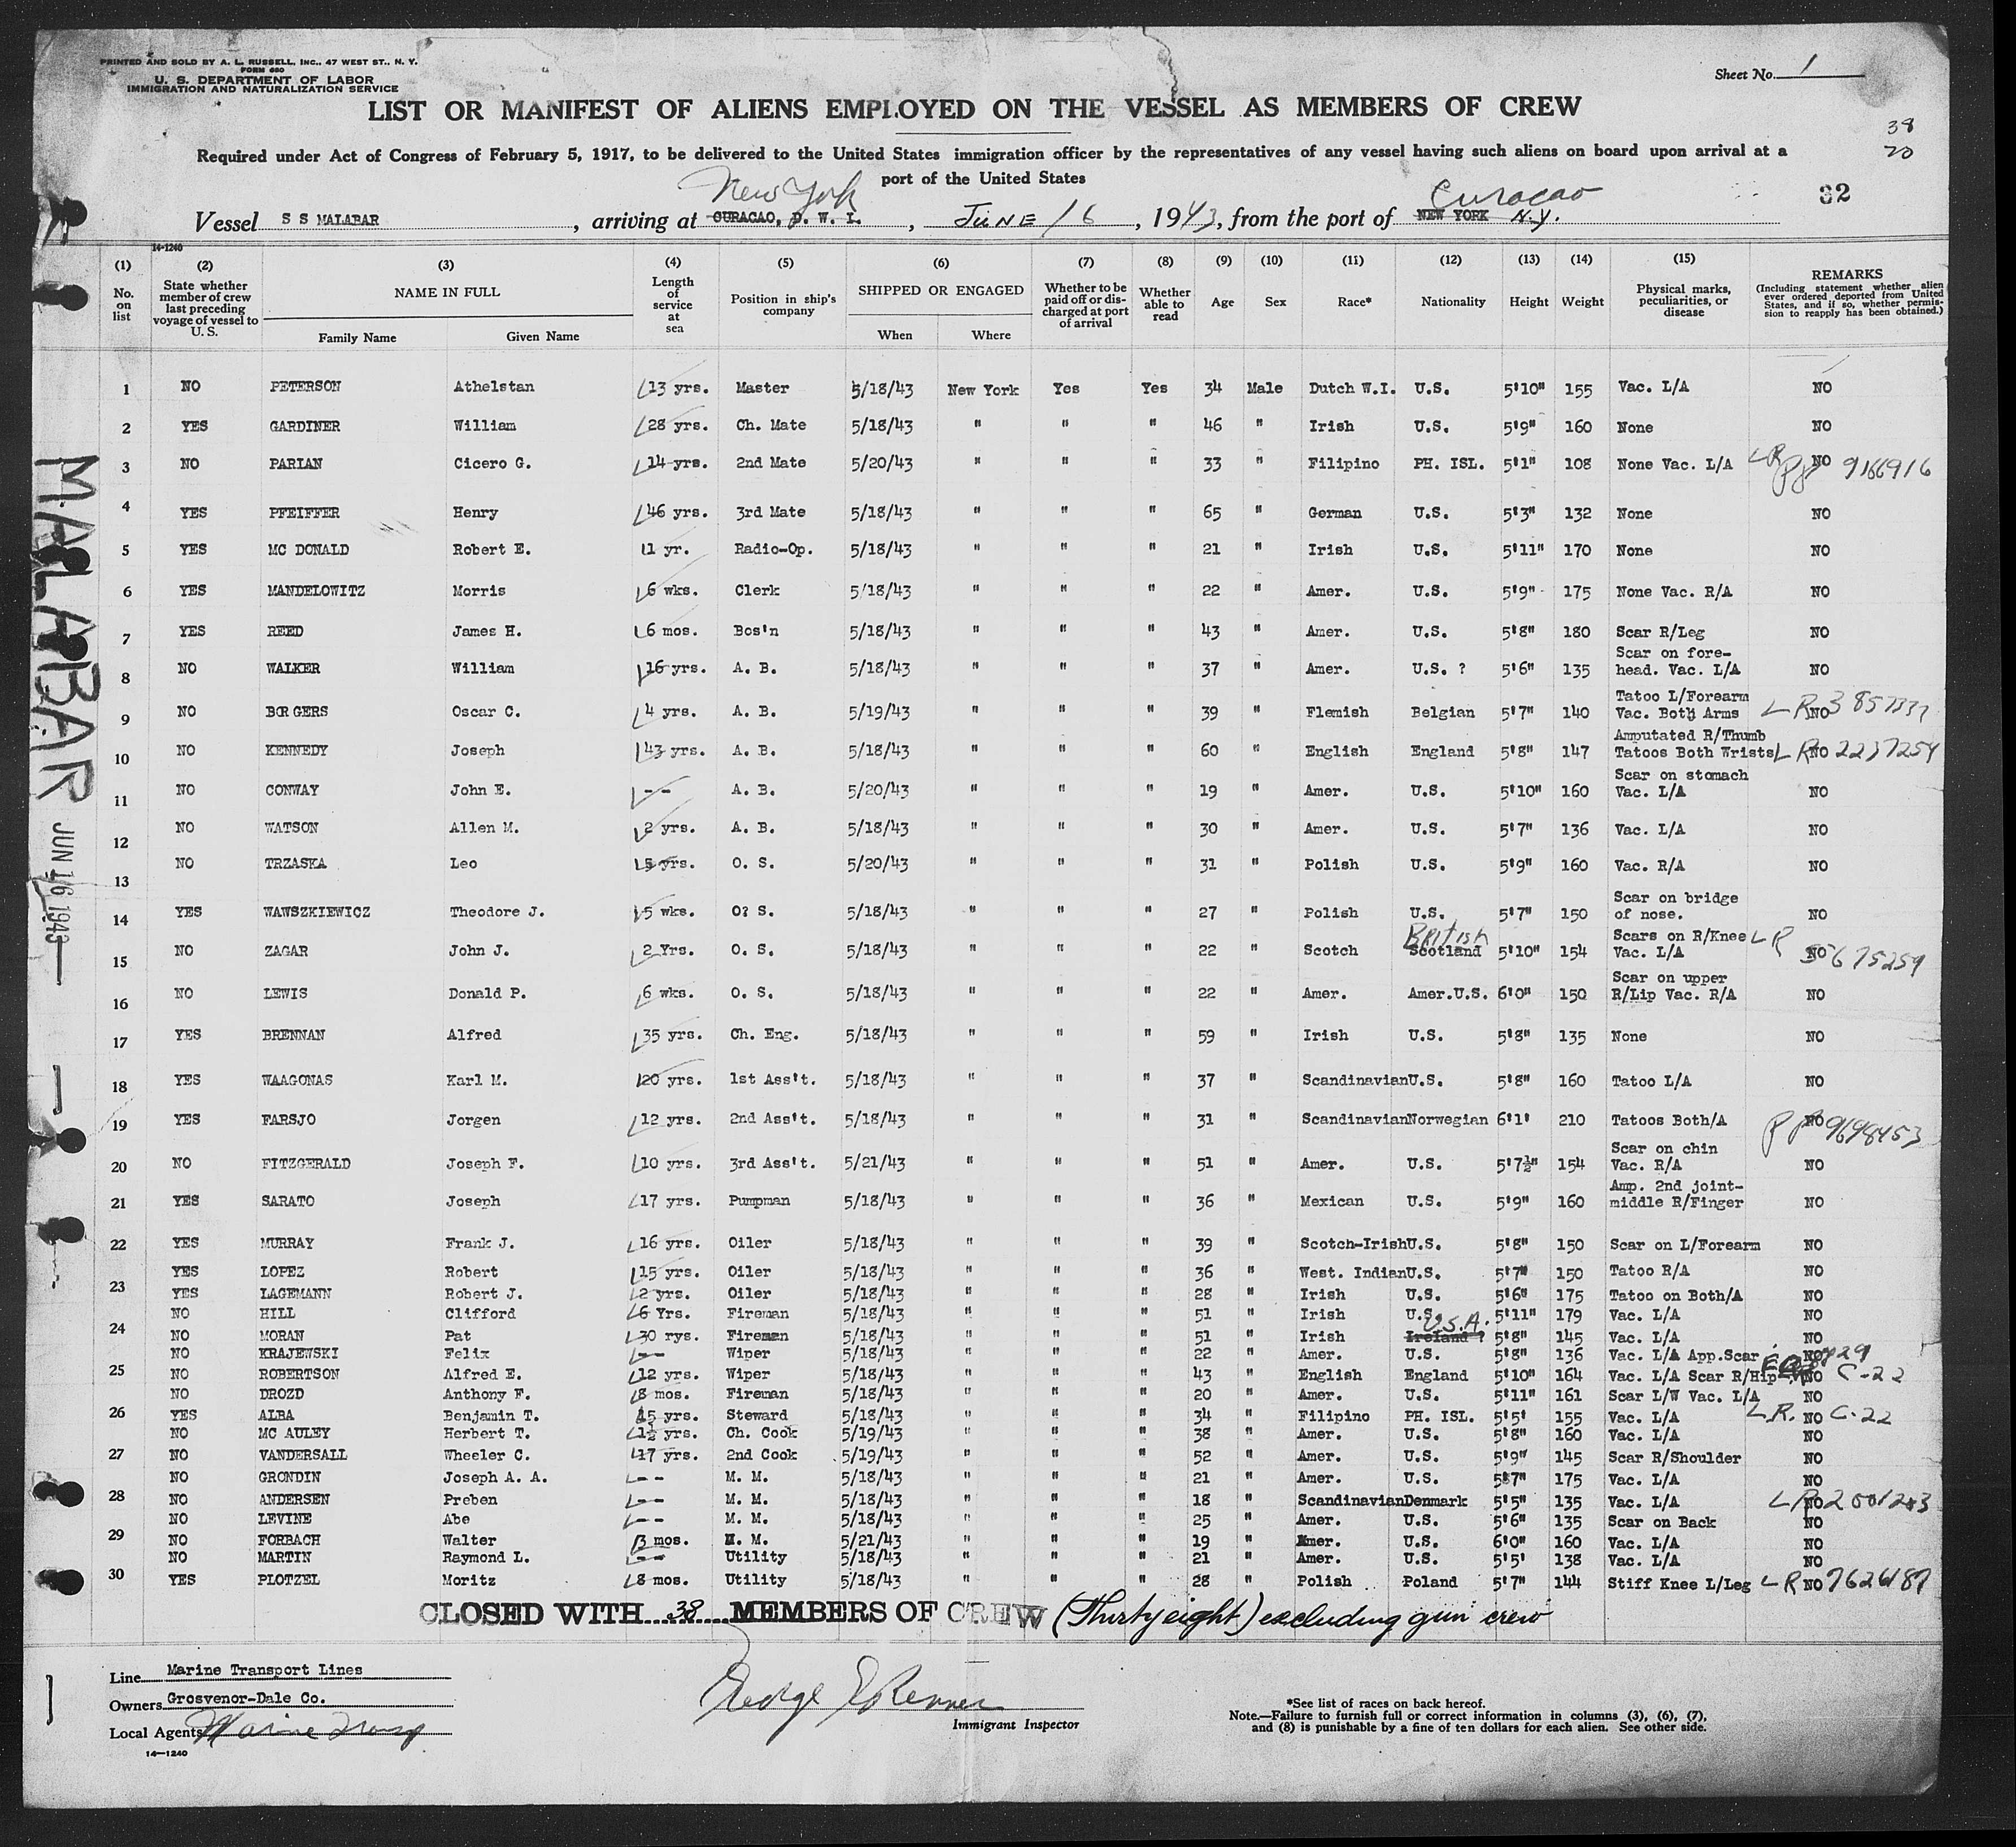 PRINTED AND SOLD BY A. L. RUSSELL, INC., 47 WEST ST., N. Y.
FORM 680
U. S. DEPARTMENT OF LABOR
IMMIGRATION AND NATURALIZATION SERVICE
Sheet No. 1
LIST OR MANIFEST OF ALIENS EMPLOYED ON THE VESSEL AS MEMBERS OF CREW
38
20
Required under Act of Congress of February 5, 1917, to be delivered to the United States immigration officer by the representatives of any vessel having such aliens on board upon arrival at a
port of the United States
32
New York Curacao
Vessel S S MALABAR, arriving at CURACAO, D. W. I., JUNE 16, 1943, from the port of NEW YORK N.Y.
14-1240
(1) No. on list
(2) State whether member of crew last preceding voyage of vessel to U. S.
(3) NAME IN FULL Family Name Given Name
(4) Length of service at sea
(5) Position in ship's company
(6) SHIPPED OR ENGAGED When Where
(7) Whether to be paid off or discharged at port of arrival
(8) Whether able to read
(9) Age
(10) Sex
(11) Race*
(12) Nationality
(13) Height
(14) Weight
(15) Physical marks, peculiarities, or disease
REMARKS (Including statement whether alien ever ordered deported from United States, and if so, whether permission to reapply has been obtained.)
1 NO PETERSON Athelstan 13 yrs. Master 5/18/43 New York Yes Yes 34 Male Dutch W.I. U.S. 5'10" 155 Vac. L/A NO
2 YES GARDINER William 28 yrs. Ch. Mate 5/18/43 " " " 46 " Irish U.S. 5'9" 160 None NO
3 NO PARIAN Cicero G. 14 yrs. 2nd Mate 5/20/43 " " " 33 " Filipino PH. ISL. 5'1" 108 None Vac. L/A LR NO 9166916
4 YES PFEIFFER Henry 46 yrs. 3rd Mate 5/18/43 " " " 65 " German U.S. 5'3" 132 None NO
5 YES MC DONALD Robert E. 1 yr. Radio-Op. 5/18/43 " " " 21 " Irish U.S. 5'11" 170 None NO
6 YES MANDELOWITZ Morris 6 wks. Clerk 5/18/43 " " " 22 " Amer. U.S. 5'9" 175 None Vac. R/A NO
7 YES REED James H. 6 mos. Bos'n 5/18/43 " " " 43 " Amer. U.S. 5'8" 180 Scar R/Leg NO
8 NO WALKER William 16 yrs. A. B. 5/18/43 " " " 37 " Amer. U.S. ? 5'6" 135 Scar on forehead. Vac. L/A NO
9 NO BORGERS Oscar C. 4 yrs. A. B. 5/19/43 " " " 39 " Flemish Belgian 5'7" 140 Tatoo L/Forearm Vac. Both Arms LR NO
10 NO KENNEDY Joseph 43 yrs. A. B. 5/18/43 " " " 60 " English England 5'8" 147 Amputated R/Thumb Tatoos Both Wrists LR NO 2237254
11 NO CONWAY John E. -- A. B. 5/20/43 " " " 19 " Amer. U.S. 5'10" 160 Scar on stomach Vac. L/A NO
12 NO WATSON Allen M. 2 yrs. A. B. 5/18/43 " " " 30 " Amer. U.S. 5'7" 136 Vac. L/A NO
13 NO TRZASKA Leo 5 yrs. O. S. 5/20/43 " " " 31 " Polish U.S. 5'9" 160 Vac. R/A NO
14 YES WAWSZKIEWICZ Theodore J. 5 wks. O? S. 5/18/43 " " " 27 " Polish U.S. 5'7" 150 Scar on bridge of nose. NO
15 NO ZAGAR John J. 2 Yrs. O. S. 5/18/43 " " " 22 " Scotch British Scotland 5'10" 154 Scars on R/Knee Vac. L/A LR NO 5675259
16 NO LEWIS Donald P. 6 wks. O. S. 5/18/43 " " " 22 " Amer. Amer.U.S. 6'0" 150 Scar on upper R/Lip Vac. R/A NO
17 YES BRENNAN Alfred 35 yrs. Ch. Eng. 5/18/43 " " " 59 " Irish U.S. 5'8" 135 None NO
18 YES WAAGONAS Karl M. 20 yrs. 1st Ass't. 5/18/43 " " " 37 " Scandinavian U.S. 5'8" 160 Tatoo L/A NO
19 YES FARSJO Jorgen 12 yrs. 2nd Ass't. 5/18/43 " " " 31 " Scandinavian Norwegian 6'1' 210 Tatoos Both/A NO PP 9698453
20 NO FITZGERALD Joseph F. 10 yrs. 3rd Ass't. 5/21/43 " " " 51 " Amer. U.S. 5'7½" 154 Scar on chin Vac. R/A NO
21 YES SARATO Joseph 17 yrs. Pumpman 5/18/43 " " " 36 " Mexican U.S. 5'9" 160 Amp. 2nd joint-middle R/Finger NO
22 YES MURRAY Frank J. 16 yrs. Oiler 5/18/43 " " " 39 " Scotch-Irish U.S. 5'8" 150 Scar on L/Forearm NO
23 YES LOPEZ Robert 15 yrs. Oiler 5/18/43 " " " 36 " West. Indian U.S. 5'7" 150 Tatoo R/A NO
YES LAGEMANN Robert J. 2 yrs. Oiler 5/18/43 " " " 28 " Irish U.S. 5'6" 175 Tatoo on Both/A NO
24 NO HILL Clifford 6 Yrs. Fireman 5/18/43 " " " 51 " Irish U.S. 5'11" 179 Vac. L/A NO
NO MORAN Pat 30 rys. Fireman 5/18/43 " " " 51 " Irish U.S.A. Ireland ? 5'8" 145 Vac. L/A NO
NO KRAJEWSKI Felix -- Wiper 5/18/43 " " " 22 " Amer. U.S. 5'8" 136 Vac. L/A App.Scar NO
25 NO ROBERTSON Alfred E. 12 yrs. Wiper 5/18/43 " " " 43 " English England 5'10" 164 Vac. L/A Scar R/Hip NO C-22
NO DROZD Anthony F. 8 mos. Fireman 5/18/43 " " " 20 " Amer. U.S. 5'11" 161 Scar L/W Vac. L/A NO
26 YES ALBA Benjamin T. 15 yrs. Steward 5/18/43 " " " 34 " Filipino PH. ISL. 5'5' 155 Vac. L/A L.R. NO C-22
NO MC AULEY Herbert T. 1½ yrs. Ch. Cook 5/19/43 " " " 38 " Amer. U.S. 5'8" 160 Vac. L/A NO
27 NO VANDERSALL Wheeler C. 17 yrs. 2nd Cook 5/19/43 " " " 52 " Amer. U.S. 5'9" 145 Scar R/Shoulder NO
NO GRONDIN Joseph A. A. -- M. M. 5/18/43 " " " 21 " Amer. U.S. 5'7" 175 Vac. L/A NO
28 NO ANDERSEN Preben -- M. M. 5/18/43 " " " 18 " Scandinavian Denmark 5'5" 135 Vac. L/A LR NO
NO LEVINE Abe -- M. M. 5/18/43 " " " 25 " Amer. U.S. 5'6" 135 Scar on Back NO
29 NO FORBACH Walter 3 mos. M. M. 5/21/43 " " " 19 " Amer. U.S. 6'0" 160 Vac. L/A NO
NO MARTIN Raymond L. -- Utility 5/18/43 " " " 21 " Amer. U.S. 5'5' 138 Vac. L/A NO
30 YES PLOTZEL Moritz 8 mos. Utility 5/18/43 " " " 28 " Polish Poland 5'7" 144 Stiff Knee L/Leg LR NO 7626187
CLOSED WITH 38 MEMBERS OF CREW (Thirtyeight) excluding gun crew
MALABAR
JUN 16 1943
Line Marine Transport Lines
Owners Grosvenor-Dale Co.
Local Agents Marine Transp
14-1240
Immigrant Inspector
*See list of races on back hereof.
Note.—Failure to furnish full or correct information in columns (3), (6), (7),
and (8) is punishable by a fine of ten dollars for each alien. See other side.